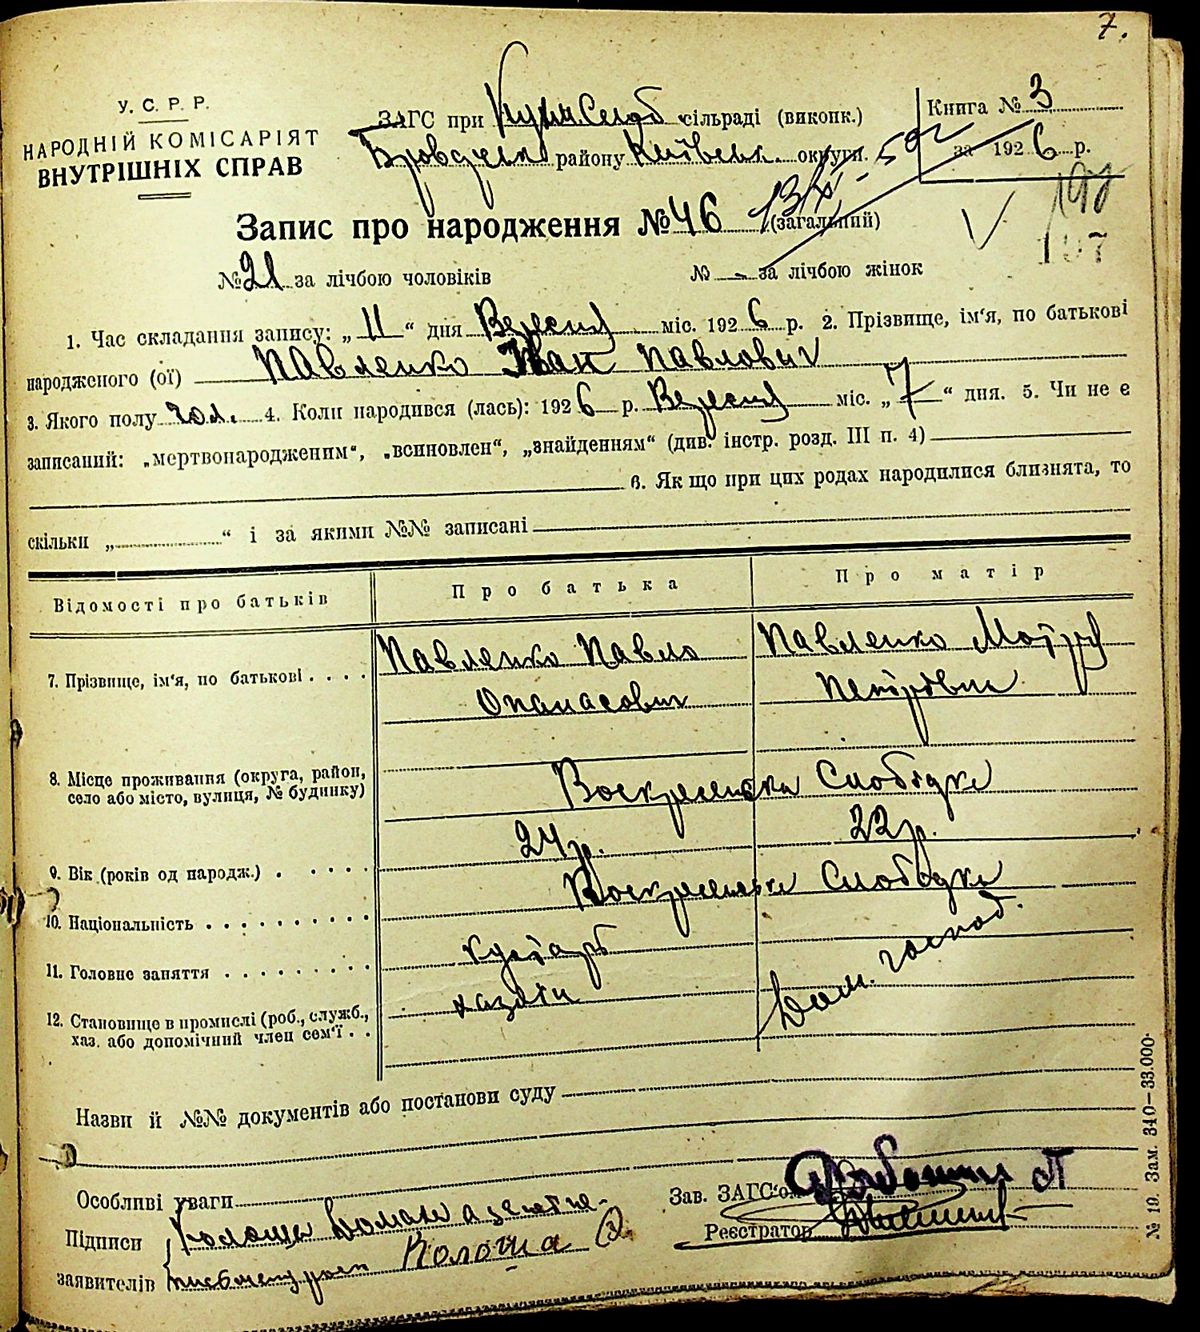 7.
У. С. Р. Р.
НАРОДНІЙ КОМІСАРІЯТ
ВНУТРІШНІХ СПРАВ
ЗАГС при сільраді (виконк.)
района Київськ. округи.
Книга № 3
за 1926 р.
Запис про народження № 46 (загальний)
№ 21 за лічбою чоловіків № - за лічбою жінок
1. Час складання запису: „ 11 “ дня Вересня міс. 1926 р. 2. Прізвище, ім‘я, по батькові
народженого (ої) Павленко Іван Павлович
3. Якого полу чол. 4. Коли народився (лась): 1926 р. Вересня міс. „ 7 “ дня. 5. Чи не є
записаний: „мертвонародженим“, „всиновлен“, „знайденням“ (див. інстр. розд. III п. 4)
6. Як що при цих родах народилися близнята, то
скільки „ “ і за якими №№ записані
Відомості про батьків Про батька Про матір
7. Прізвище, ім‘я, по батькові . . . . Павленко Павло Павленко Мотря
Опанасович Петрівна
8. Місце проживання (округа, район,
село або місто, вулиця, № будинку)
Воскресенська Слобідка
24 р. 22 р.
9. Вік (років од народж.)
Воскресенська Слобідка
10. Національність
кустарь
11. Головне заняття
хазяїн Дом. господ.
12. Становище в промислі (роб., служб.,
хаз. або допомічний член сем‘ї
Назви й №№ документів або постанови суду
Особливі уваги
Зав. ЗАГС‘ом
Підписи
Реєстратор
заявителів Колоша
№ 19. Зам. 340—33.000.